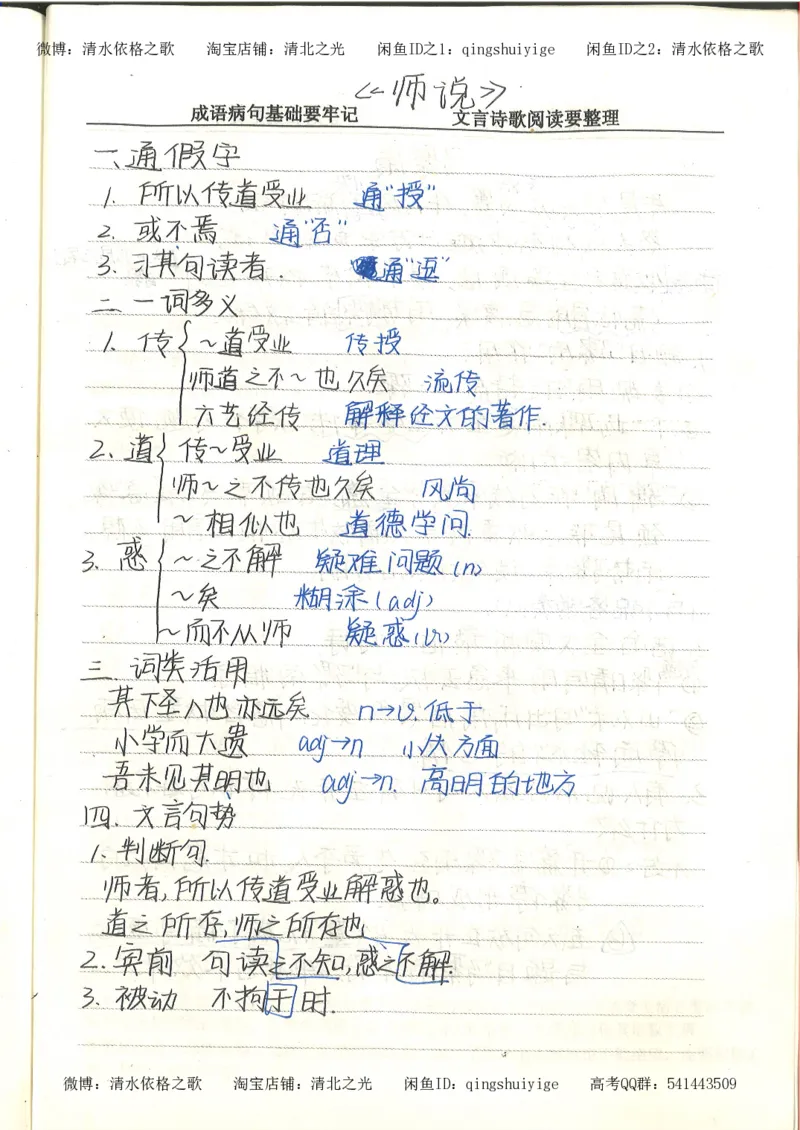 微博：清水依格之歌 淘宝店铺：清北之光 闲鱼ID之1：qingshuiyige 闲鱼ID之2：清水依格之歌
《师说》
成语病句基础要牢记 文言诗歌阅读要整理
一、通假字
1. 所以传道受业 通"授"
2. 或不焉 通"否"
3. 习其句读者. 通"逗"
二 一词多义
1. 传 ～道受业 传授
师道之不～也久矣 流传
六艺经传 解释经文的著作.
2. 道 传～受业 道理
师～之不传也久矣 风尚
～相似也 道德学问.
3. 惑 ～之不解 疑难问题(n)
～矣 糊涂(adj)
～而不从师 疑惑(v)
三. 词类活用
其下圣人也亦远矣 n→v. 低于
小学而大遗 adj→n 小的方面
吾未见其明也 adj→n. 高明的地方
四. 文言句势
1. 判断句.
师者,所以传道受业解惑也。
道之所存,师之所存也
2. 宾前 句读之不知,惑之不解.
3. 被动 不拘于时.
微博：清水依格之歌 淘宝店铺：清北之光 闲鱼ID：qingshuiyige 高考QQ群：541443509